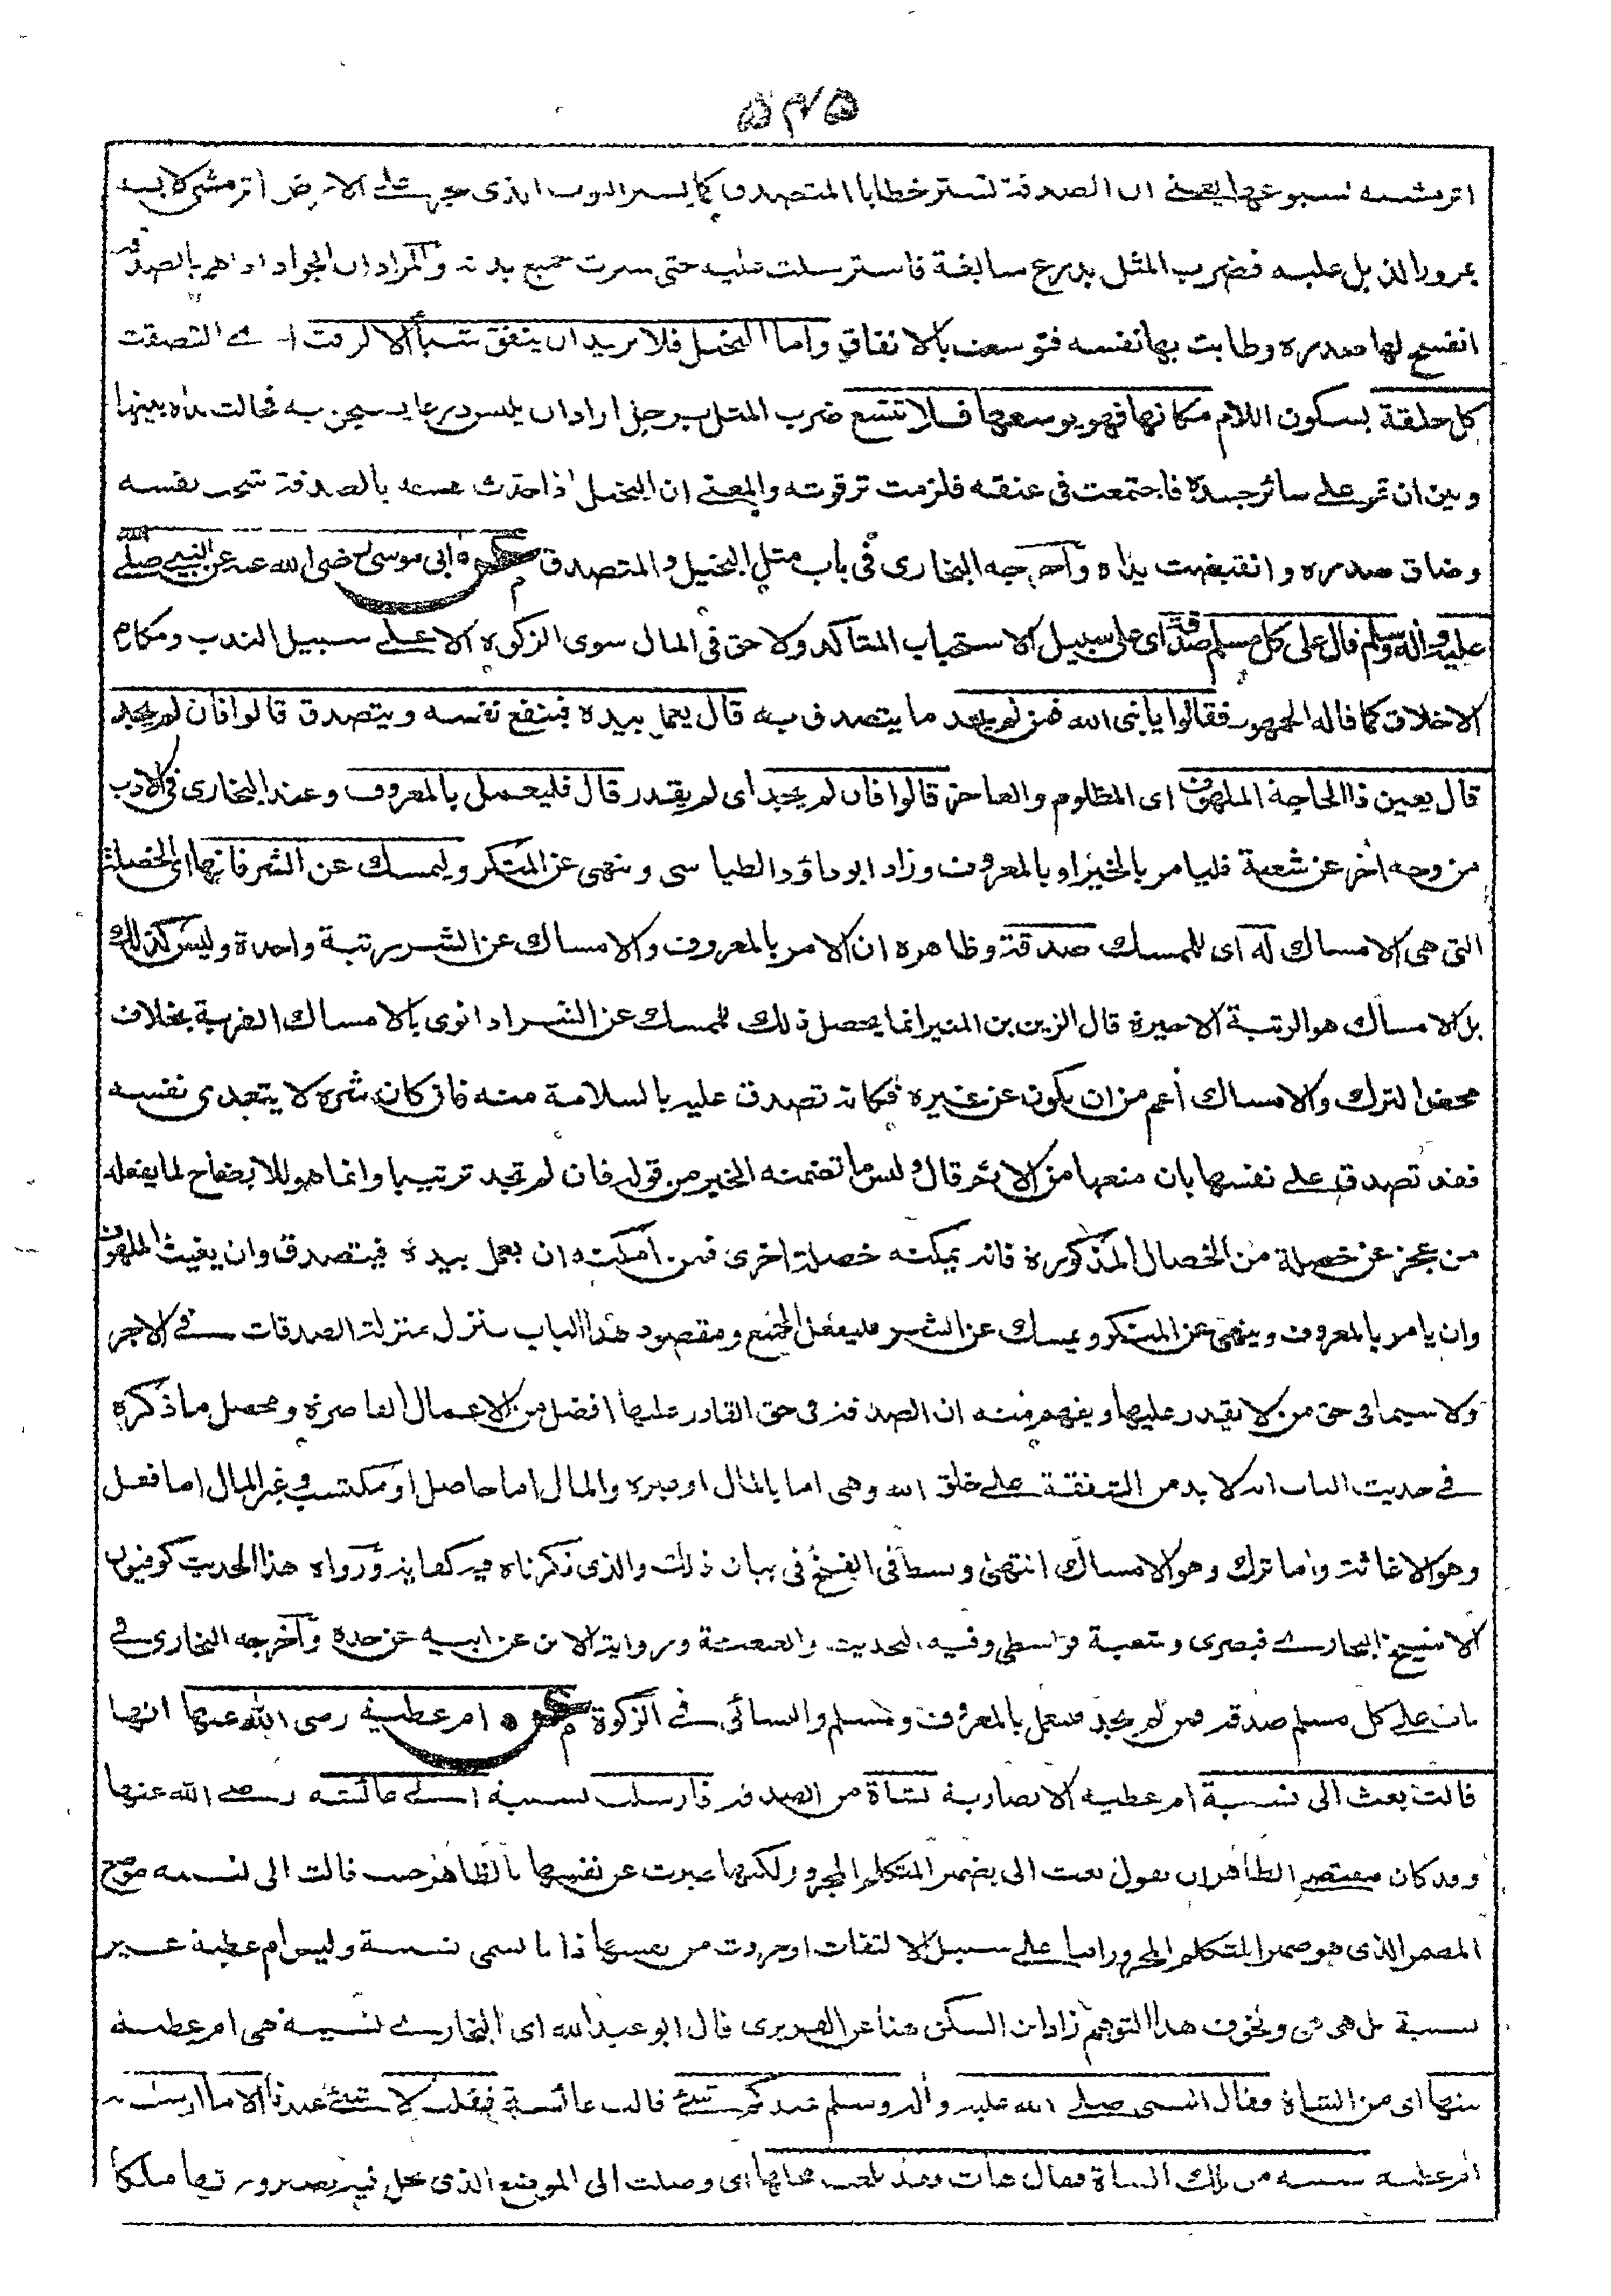 ۵۴۵
اثر مشيه لسبوغها يعني ان الصدقة تستر خطايا المتصدق كما يستر الثوب الذى يجر على الارض اثر مشي لابسه
بمرور الذيل عليه فضرب المثل بدرع سابغة فاسترسلت عليه حتى سترت جميع بدنه والمراد ان الجواد اذا هم بالصدقة
انفسح لها صدره وطابت بها نفسه فتوسعت بالانفاق واما البخيل فلا يريد ان ينفق شيئا الا لزقت اے التصقت
كل حلقة بسكون اللام مكانها فهو يوسعها فلا تتسع ضرب المثل برجل اراد ان يلبس درعا يستجن به فحالت يداه بينها
وبين ان تمر على سائر جسده فاجتمعت فى عنقه فلزمت ترقوته والمعنے ان البخيل اذا حدث نفسه بالصدقة شحت نفسه
وضاق صدره وانقبضت يداه وأخرجه البخارى فى باب مثل البخيل والمتصدق ابى موسى رضى الله عنه عن النبى صلى الله
عليه وآله وسلم قال على كل مسلم صدقة اى على سبيل الاستحباب المتاكد ولا حق فى المال سوى الزكوة الا على سبيل الندب ومكارم
الاخلاق كما قاله الجمهور فقالوا يا نبى الله فمن لم يجد ما يتصدق به قال يعمل بيده فينفع نفسه ويتصدق قالوا فان لم يجد
قال يعين ذا الحاجة الملهوف اى المظلوم والعاجز قالوا فان لم يجد اى لم يقدر قال فليعمل بالمعروف وعند البخارى فى الادب
من وجه أخر عن شعبة فليامر بالخير او بالمعروف وزاد ابو داؤد الطيالسى وينهى عن المنكر وليمسك عن الشر فانها اى الخصلة
التى هى الامساك له اى للممسك صدقة وظاهره ان الامر بالمعروف والامساك عن الشر رتبة واحدة وليس كذلك
بل الامساك هو الرتبة الاخيرة قال الزين بن المنير انما يحصل ذلك للممسك عن الشر اذا نوى بالامساك القربة بخلاف
محض الترك والامساك أعم من ان يكون عن غيره فكانه تصدق عليه بالسلامة منه فان كان شره لا يتعدى نفسه
فقد تصدق على نفسه بان منعها من الاثم قال وليس ما تضمنه الخبر من قوله فان لم يجد ترتيبا وانما هو للايضاح لما يفعله
من عجز عن خصلة من الخصال المذكورة فانه يمكنه خصلة اخرى فمن أمكنه ان يعمل بيده فيتصدق وان يغيث الملهوف
وان يامر بالمعروف وينهى عن المنكر ويمسك عن الشر فليفعل الجميع ومقصود هذا الباب ينزل منزلة الصدقات فے الاجر
ولا سيما فى حق من لا يقدر عليها ويفهم منه ان الصدقة فى حق القادر عليها افضل من الاعمال القاصرة ومحصل ما ذكره
فے حديث الباب انه لا بد من الشفقة على خلق الله وهى اما بالمال او غيره والمال اما حاصل او مكتسب وغير المال اما فعل
وهو الاغاثة واما ترك وهو الامساك انتهى وبسط فى الفتح فى بيان ذلك والذى ذكرناه فيه كفاية ورواه هذا الحديث كوفيون
الا شيخ البخارے فبصرى وشعبة فواسطى وفيه التحديث والعنعنة ورواية الابن عن ابيه عن جده وأخرجه البخارى فے
باب على كل مسلم صدقة فمن لم يجد فليعمل بالمعروف ومسلم والنسائى فے الزكوة ام عطية رضى الله عنها انها
قالت بعث الى نسيبة ام عطية الانصارية بشاة من الصدقة فارسلت نسيبة الى عائشة رضے الله عنها
وقد كان مقتضے الظاهر ان يقول بعث الى بضمير المتكلم المجرور لكنها عبرت عن نفسها بالظاهر حيث قالت الى نسيبه موضع
المضمر الذى هو ضمير المتكلم المجرور اما على سبيل الالتفات او جردت من نفسها ذاتا تسمى نسيبة وليس ام عطية غير
نسيبة بل هى هى ولخوف هذا التوهم زاد ابن السكن هنا عن الفربرى قال ابو عبد الله اى البخارے نسيبه هى ام عطية
منها اى من الشاة فقال النبى صلے الله عليه وآله وسلم عندكم شئے قالت عائشة فقلت لا شئے عندنا الا ما ارسلت به
ام عطية نسيبه من تلك الشاة فقال هات فقد بلغت محلها اى وصلت الى الموضع الذى تحل فيه بصيرورتها ملكا